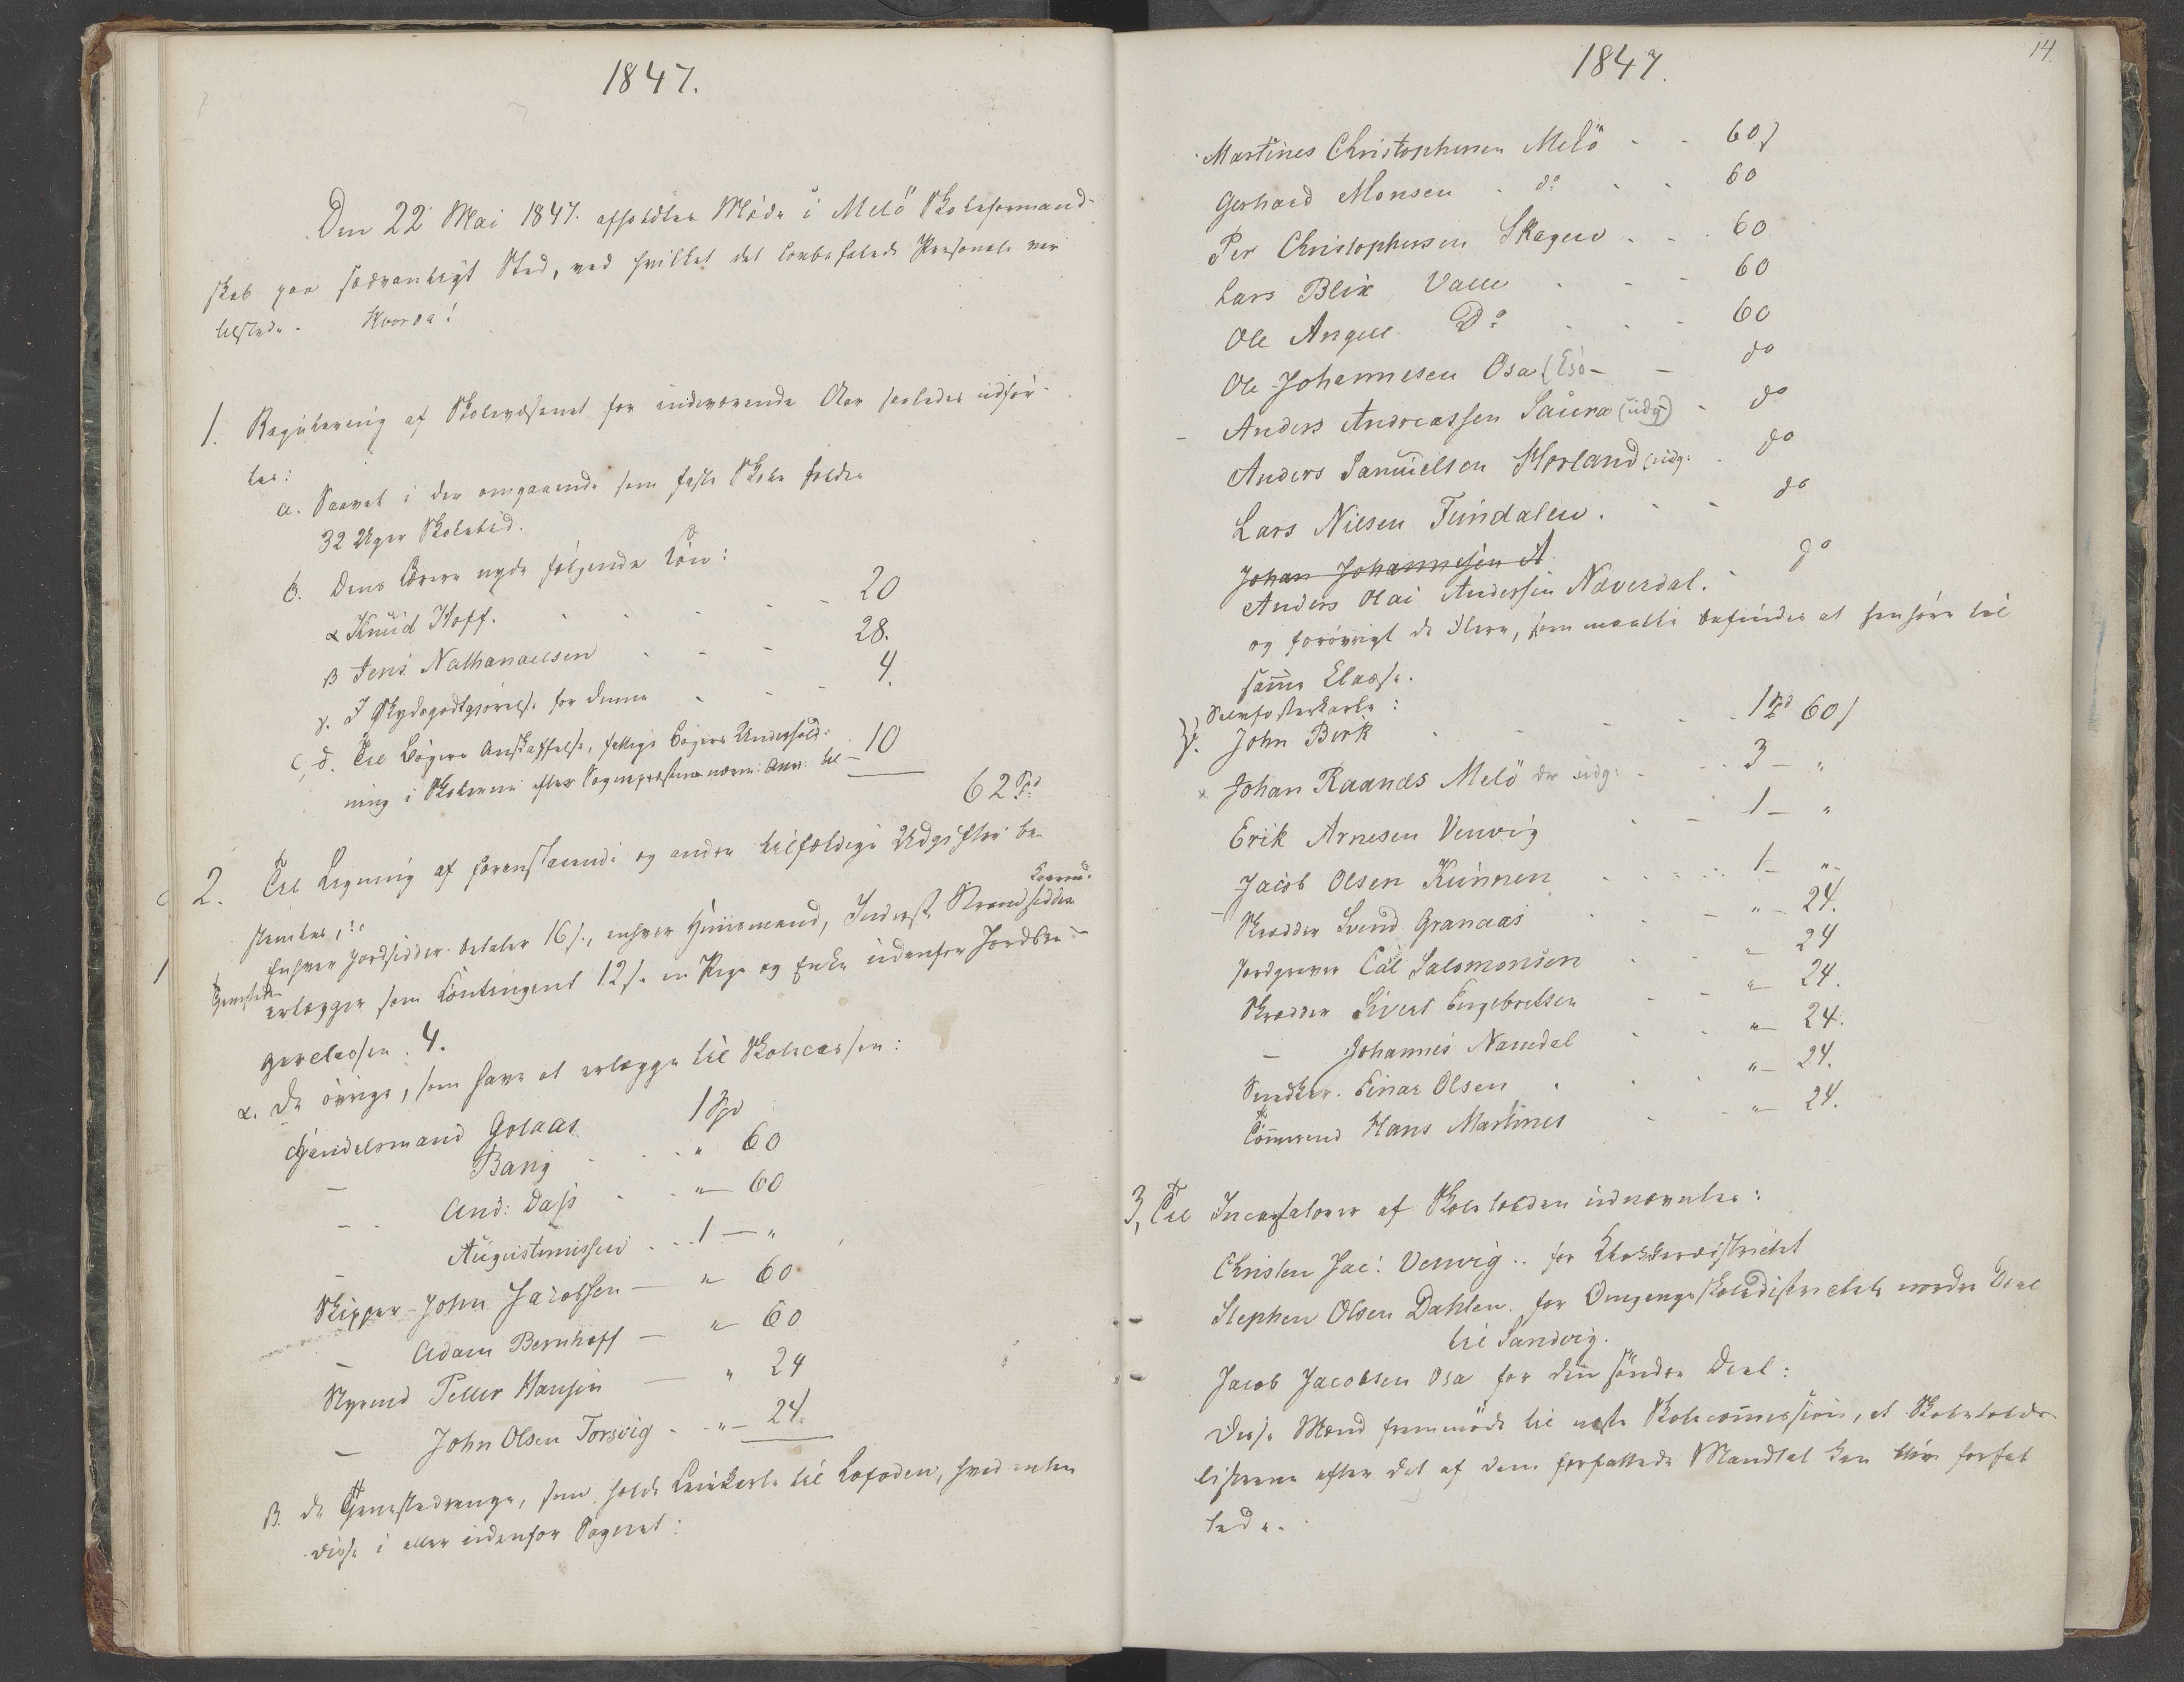 1847.
Den 22 Mai 1847. afholdtes Møde i Melö Skoleformand-
skab paa sædvanligt Sted, ved hvilket det lovbefalede Personale var
tilstede. Hvorda:
1. Regulering af Skolevæsenet for indeværende Aar saaledes udför-
tes:
a. Saavel i den omgaaende som faste Skole holdes
32 Uger Skoletid.
b. Dens Lærere nyde fölgende Lön:
α Knud Hoff. - - - 20
β Jens Nathanaelsen - - - 28.
γ. I Skydsgodtgjörelse for denne - - - 4.
c, d. Til Bögers Anskaffelse, fattige Börns Underhold-
ning i Skolerne efter Sognepræstens nærm: Anv: til - 10
62 Spd
2. Til Ligning af foranstaaende og andre tilfældige Udgifter be-
stemtes, at
Enhver Jordsidder betaler 16 s., enhver Huusmand, Inderst, Strandsidder
erlægger som Contingent 12 s. en Pige og Enke udenfor Jordbru-
gerclassen 4.
α. De övrige, som have at erlægge til Skolecassen:
Handelsmand Golaas 1 Spd
— Bang - - - " 60
— And: Dass - - " — 60
— Augustinussen - - 1 — "
Skipper John Jacobsen — " 60
— Adam Bernhoff — " 60
Styrmd Petter Hansen — " 24
— John Olsen Torsvig - " — 24.
β. de Gaardsdrenge, som holde Leiekarle til Lofoden, hvad enten
disse i eller udenfor Sognet:
1847.
14.
Martines Christophersen Melö - - 60 s
Gerhard Monsen - do - - 60
Per Christophersen Skagen - - 60
Lars Blix Valle - - - 60
Ole Angell Do - - - 60
Ole Johannesen Osa (Esö — — do
Anders Andreassen Saura (udg) - do
Anders Samuelsen Horland (udg: - do
Lars Nilsen Tundalen. - - do
Johan Johannesen A
Anders Olai Andersen Næverdal. - do
og forövrigt de Flere, som maatte befindes at henhöre til
samme Classe.
Selvfosterkarle:
γ. John Birk - - - 1 Spd 60 s
Johan Raanæs Melö der udg: - - 3 — "
Erik Arnesen Venvig - - 1 — "
Jacob Olsen Kunnen - - - - 1 — "
Skrædder Svend Granaas - - - " — 24.
Jordgraver Cal Salomonsen - - " 24
Skrædder Sivert Engebretsen - - " 24.
— Johannes Næredal - - " — 24.
Snedker Einar Olsen - - " — 24.
Tömmermd Hans Martines - - " — 24.
3, Til Incassatorer af Skoletolden udnævntes:
Christen Jac: Venvig .. for Klokkerdistrictet
Stephen Olsen Dahlen. for Omgangsskoledistrictets nordre Deel
til Sandvig.
Jacob Jacobsen Osa for den söndre Deel:
Disse Mænd fremmöde til næste Skolecommission, at Skoletolds-
listerne efter det af dem forfattede Mandtal kan blive forfat
tede.